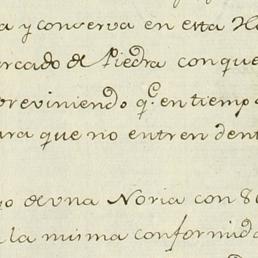 a y conserva en esta
ercado de Piedra con que
previniendo q.e en tiempo
ara que no entren dent
o de una Noria con 86
la misma conformid